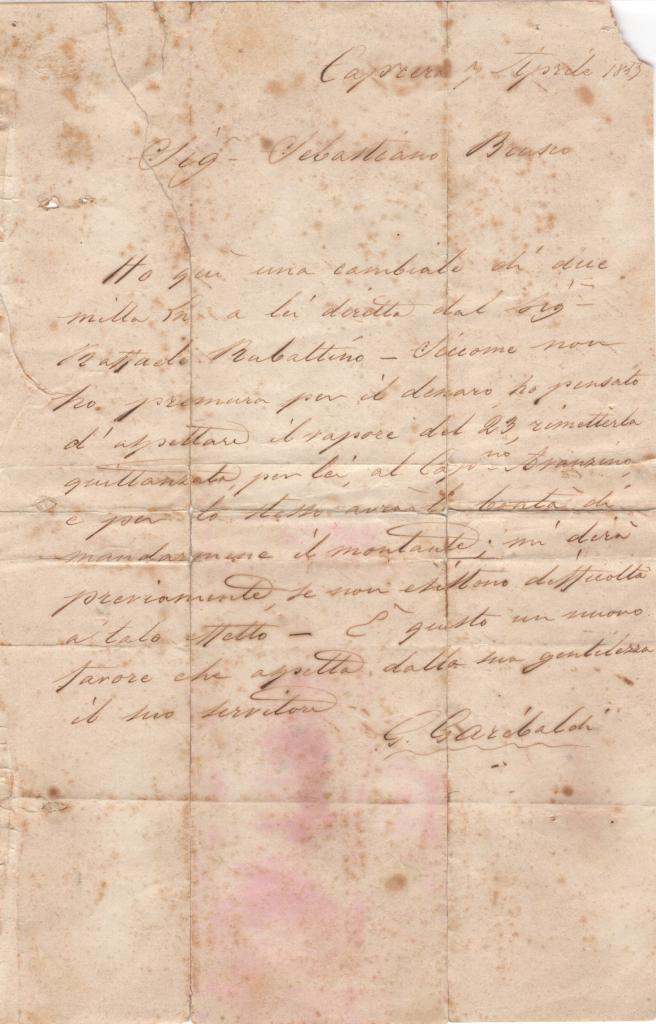 Caprera 7 Aprile
Sigr Sebastiano Brusco
Ho quì una cambiale di due
milla Ln a lei diretta dal Sigr
Raffaele Rubattino – Siccome non
ho premura per il denaro, ho pensato
d'aspettare il vapore del 23, rimetterla
quittanzata, per lei, al Capno Avanzino,
e per lo stesso avrà la bontà di
mandarmene il montante; mi dirà
previamente, se non esistono difficoltà
a talo effetto – È questo un nuovo
favore che aspetta dalla sua gentilezza
il suo servitore
G. Garibaldi